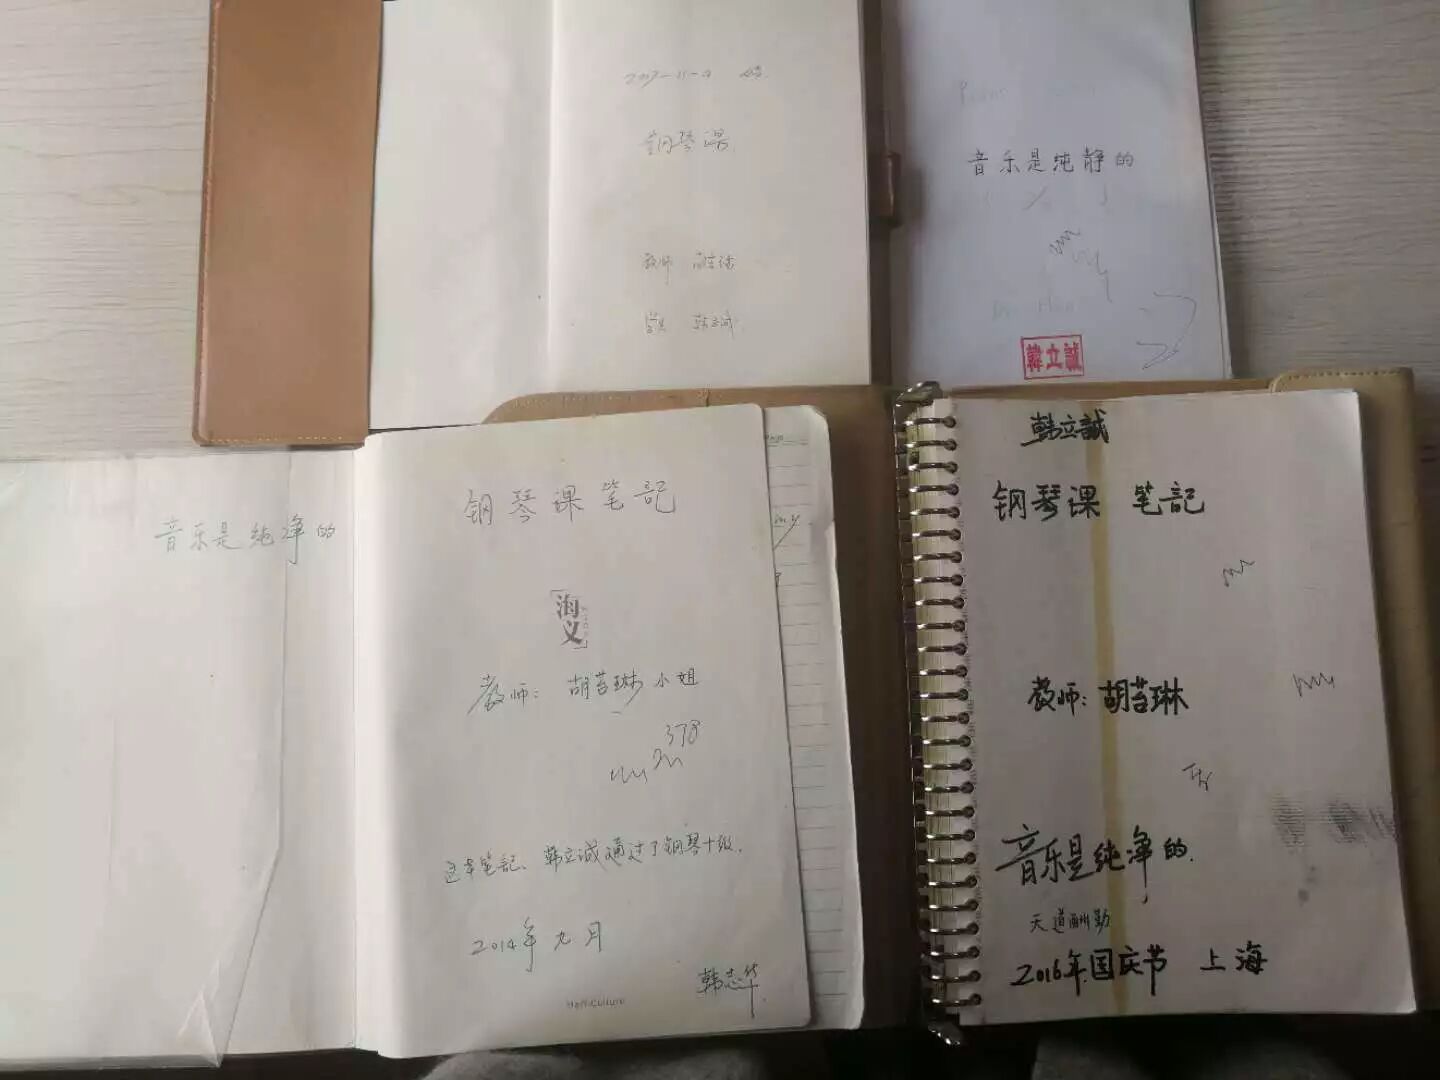 钢琴课
教师
韩立诚
音乐是纯静的
韓立誠
音乐是纯净的
钢琴课笔记
海义
教师：胡苔琳小姐
378
这本笔记、韩立诚通过了钢琴十级.
2014年九月
韩志华
韩立誠
钢琴课 笔记
教师：胡苔琳
音乐是纯净的.
天道酬勤
2016年国庆节 上海